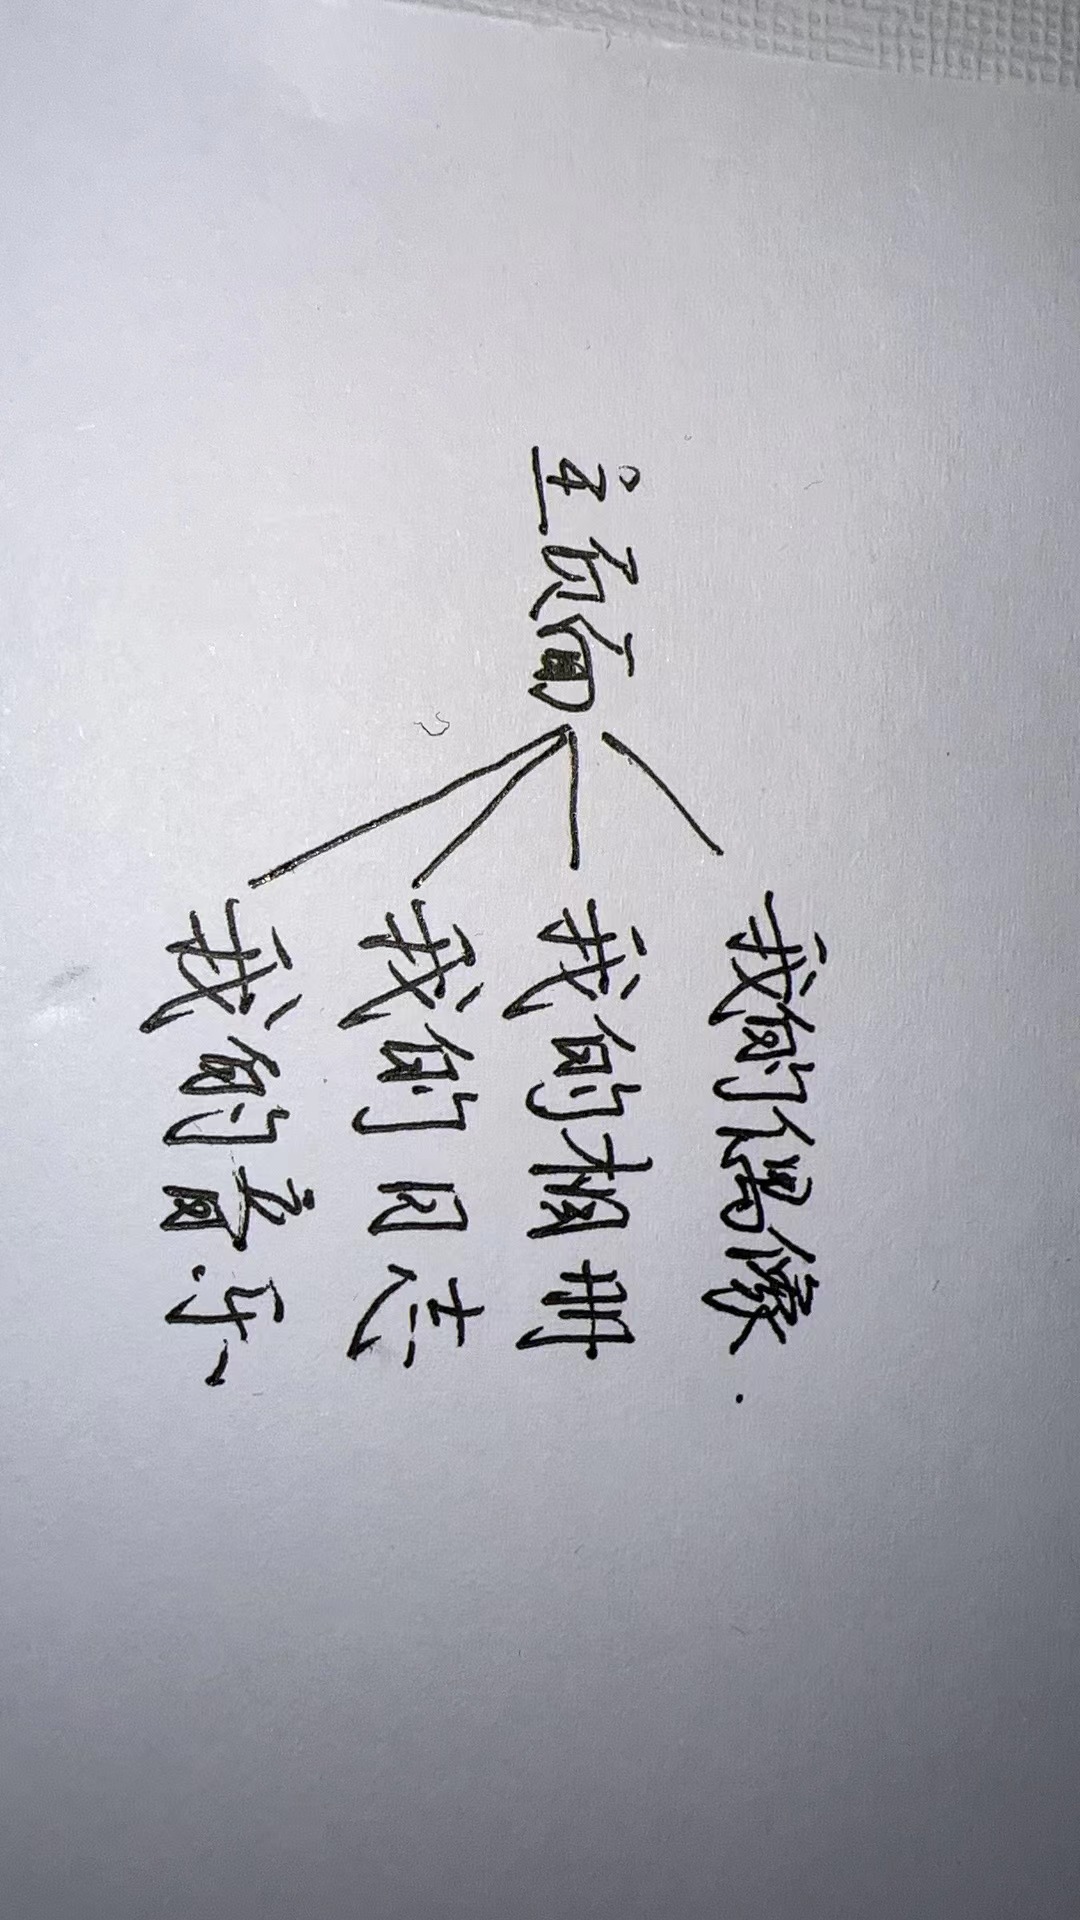 主页面
我的偶像
我的相册
我的日志
我的音乐